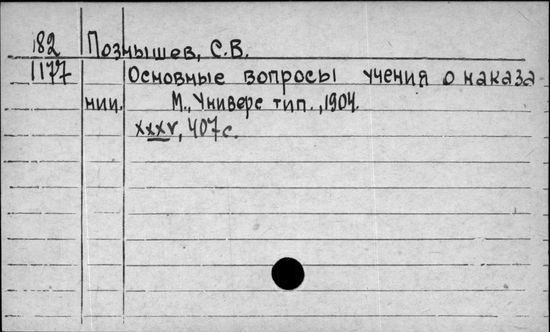 82 Познышев, С.В.
1177 Основные вопросы учения о наказа
нии. М., Универс тип., 1904.
xxxv, 407 с.